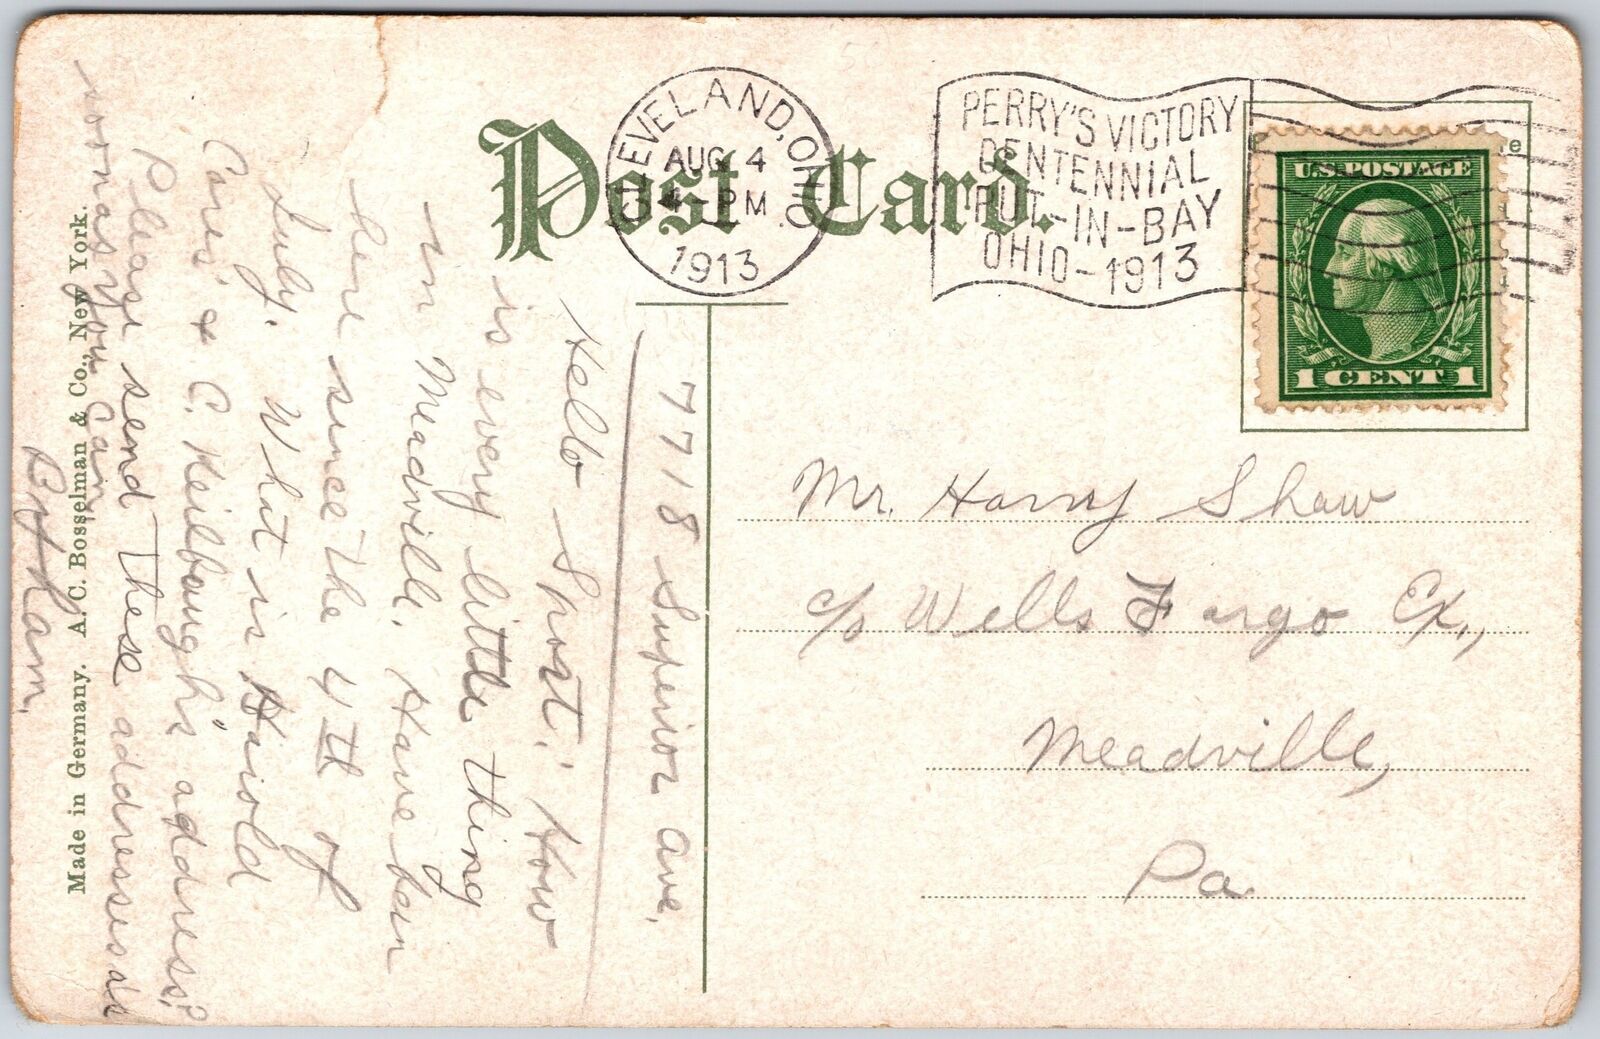 Post Card.
CLEVELAND, OHIO.
AUG 4
4-PM
1913
PERRY'S VICTORY
CENTENNIAL
PUT-IN-BAY
OHIO-1913
U.S. POSTAGE
1 CENT 1
Mr. Harry Shaw
c/o Wells Fargo Ex.,
Meadville,
Pa.
7718 Superior Ave.
Hello Sport! How
is every little thing
in Meadville. Have been
here since the 4th of
July. What is Harold
Cares' & C. Keilbaugh's address?
Please send these addresses as
soon as you can
Made in Germany. A. C. Bosselman & Co., New York.